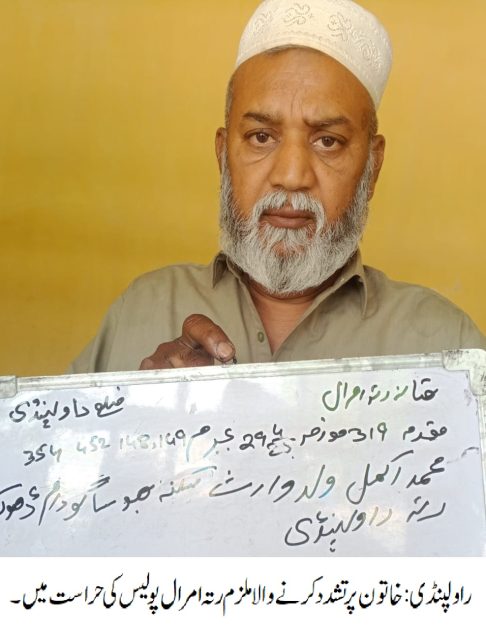 تھانہ رتہ امرال ضلع راولپنڈی
مقدمہ 319 مورخہ 29 4 بجرم 148,149 452 354
محمد اکمل ولد وارث سکنہ بھوسا گودام ڈھوک
رتہ راولپنڈی
راولپنڈی: خاتون پر تشدد کرنے والا ملزم رتہ امرال پولیس کی حراست میں۔